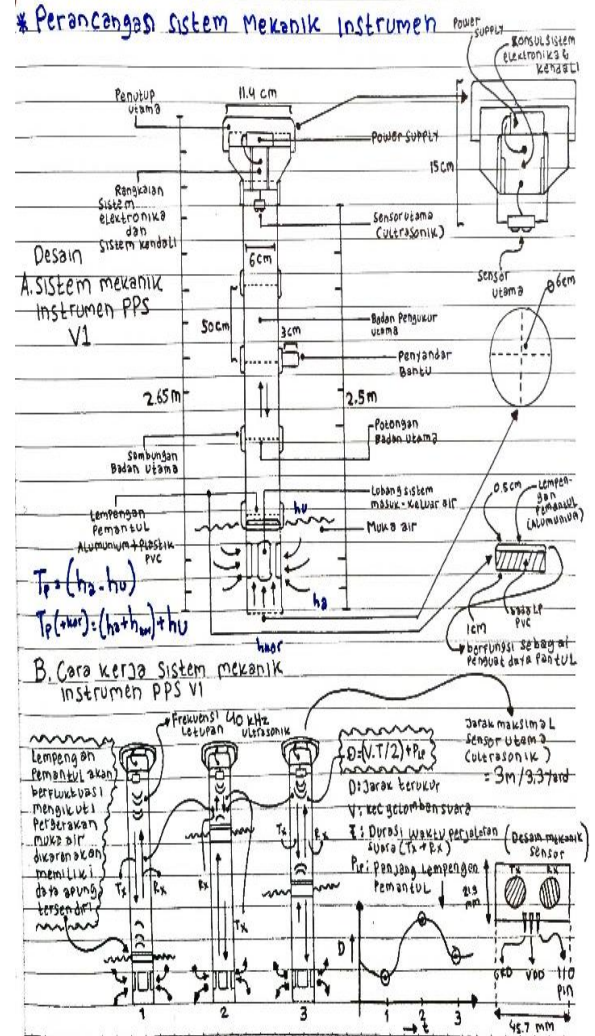 * Perancangan sistem Mekanik Instrumen
Power
supply
Konsul sistem
elektronika &
kendali
Penutup
utama
11.4 cm
Power supply
15 cm
Rangkaian
Sistem
elektronika
dan
Sistem kendali
Sensor utama
(ultrasonik)
Sensor
utama
Desain
A. Sistem mekanik
instrumen PPS
V1
6cm
Ø6cm
50cm
Badan Pengukur
utama
3cm
Penyandar
Bantu
2.65m
2.5m
Potongan
Badan utama
Sambungan
Badan utama
Lempengan
Pemantul
Alumunium+Plastik
PVC
Lobang sistem
masuk-keluar air
hu
Muka air
0.5cm
Lempen-
gan
Pemantul
(Alumunium)
Tp = (ha - hu)
ha
1cm
PVC
berfungsi sebagai
Penguat daya Pantul
hkor
B. Cara kerja Sistem mekanik
instrumen PPS V1
Frekuensi 40 kHz
Letupan ultrasonik
Jarak maksimal
sensor utama
(ultrasonik)
= 3m/3,3yard
Lempengan
Pemantul akan
berfluktuasi
mengikuti
Pergerakan
muka air
dikarenakan
memiliki
daya apung
tersendiri
D=(V.T/2)+PLP
D: Jarak terukur
V: kec gelombang suara
T: Durasi waktu perjalanan
suara (Tx+Rx)
PLP: Panjang Lempengan
Pemantul
(Desain mekanik
sensor)
Tx
Rx
Rx
Tx
Tx
Rx
Tx
Rx
21.9
mm
D
GND
VDD
I/O
Pin
45.7 mm
1
2
3
1
2
3
t